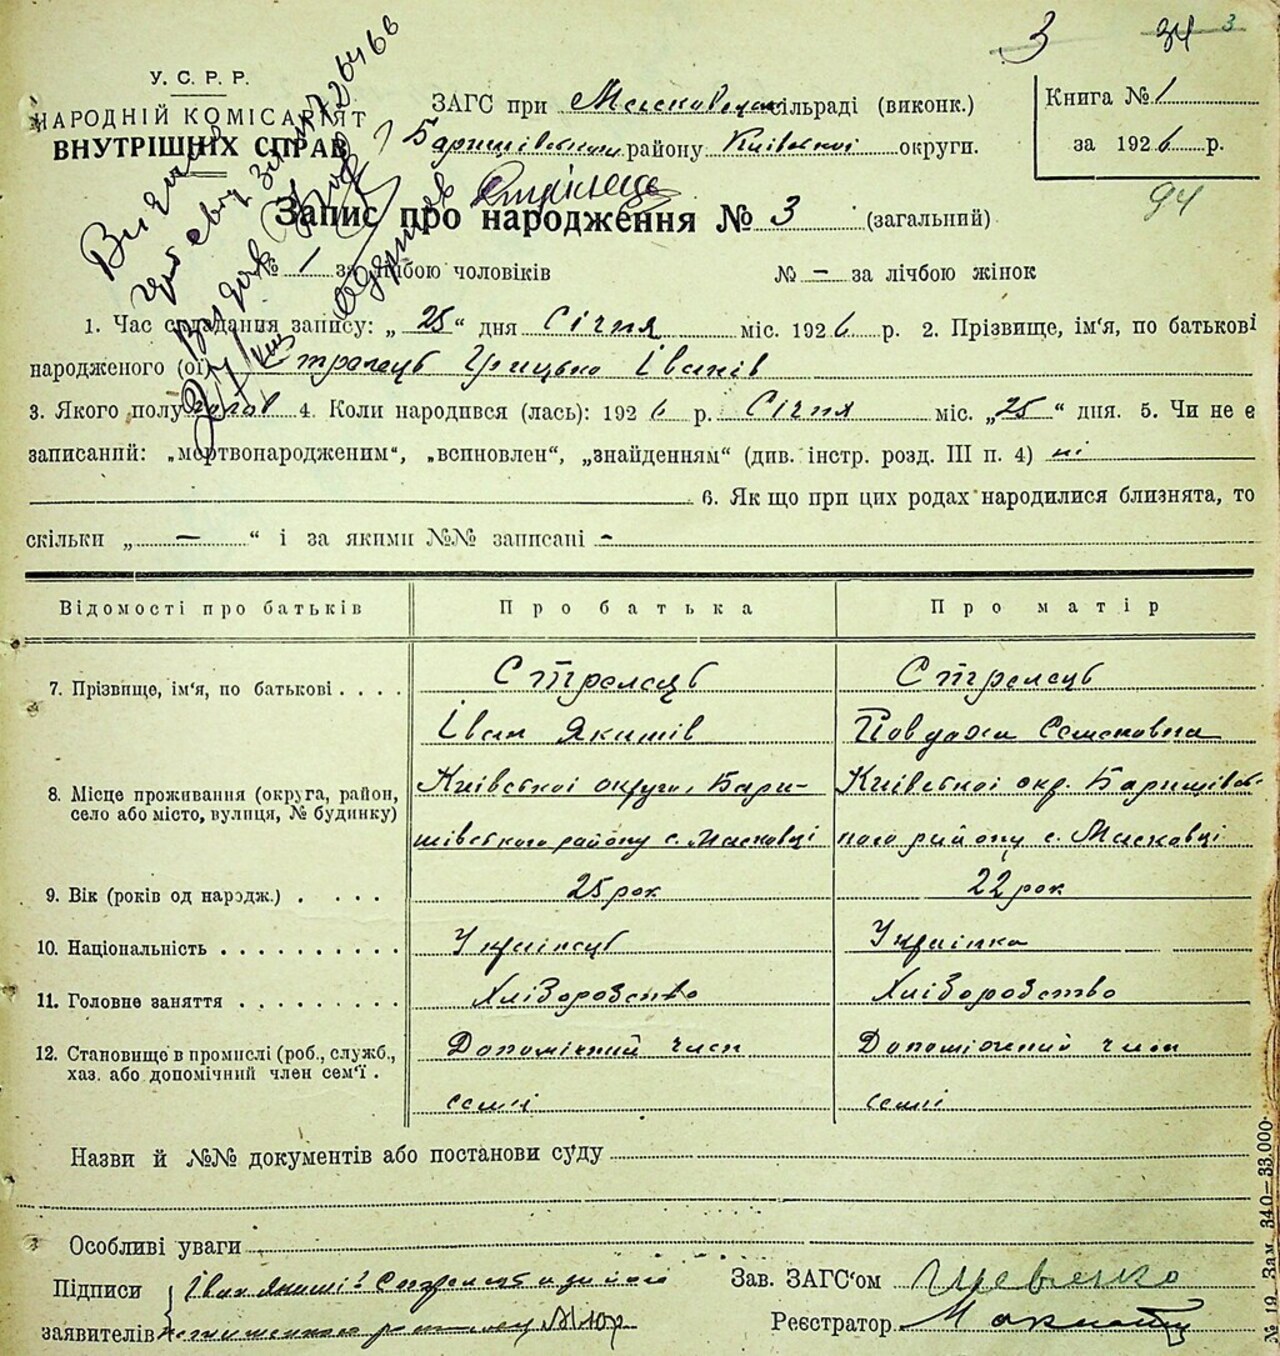 3 34 3
У. С. Р. Р.
НАРОДНІЙ КОМІСАРІЯТ
ВНУТРІШНІХ СПРАВ
ЗАГС при Масковецькій сільраді (виконк.)
Баришівського району Київської округи.
Книга № 1
за 1926 р.
94
Запис про народження № 3 (загальний)
№ 1 за лічбою чоловіків № – за лічбою жінок
1. Час складання запису: „25“ дня Січня міс. 1926 р. 2. Прізвище, ім'я, по батькові
народженого (ої) Стрелець Грицько Іванів
3. Якого полу чолов 4. Коли народився (лась): 1926 р. Січня міс. „25“ дня. 5. Чи не є
записаний: „мертвонародженим“, „всиновлен“, „знайденням“ (див. інстр. розд. III п. 4) ні
6. Як що при цих родах народилися близнята, то
скільки „ – “ і за якими №№ записані –
Відомості про батьків Про батька Про матір
7. Прізвище, ім'я, по батькові . . . . Стрелець Стрелець
Іван Якимів Явдоха Семеновна
8. Місце проживання (округа, район, село або місто, вулиця, № будинку) Київської округи, Бари- Київської окр. Баришівсь-
шівського району с. Масковці кого району с. Масковці
9. Вік (років од народж.) . . . . 25 рок 22 рок
10. Національність . . . . . . . . . . Українець Українка
11. Головне заняття . . . . . . . . . Хліборобство Хліборобство
12. Становище в промислі (роб., служб., Допомічний член Допомічний член
хаз. або допомічний член сем'ї . семьї семьї
Назви й №№ документів або постанови суду
Особливі уваги
Підписи Іван Якимів Стрелець а за його
заявителів неписьменного
Зав. ЗАГС'ом Шевченко
Реєстратор
№ 19. Зам. 340—33.000